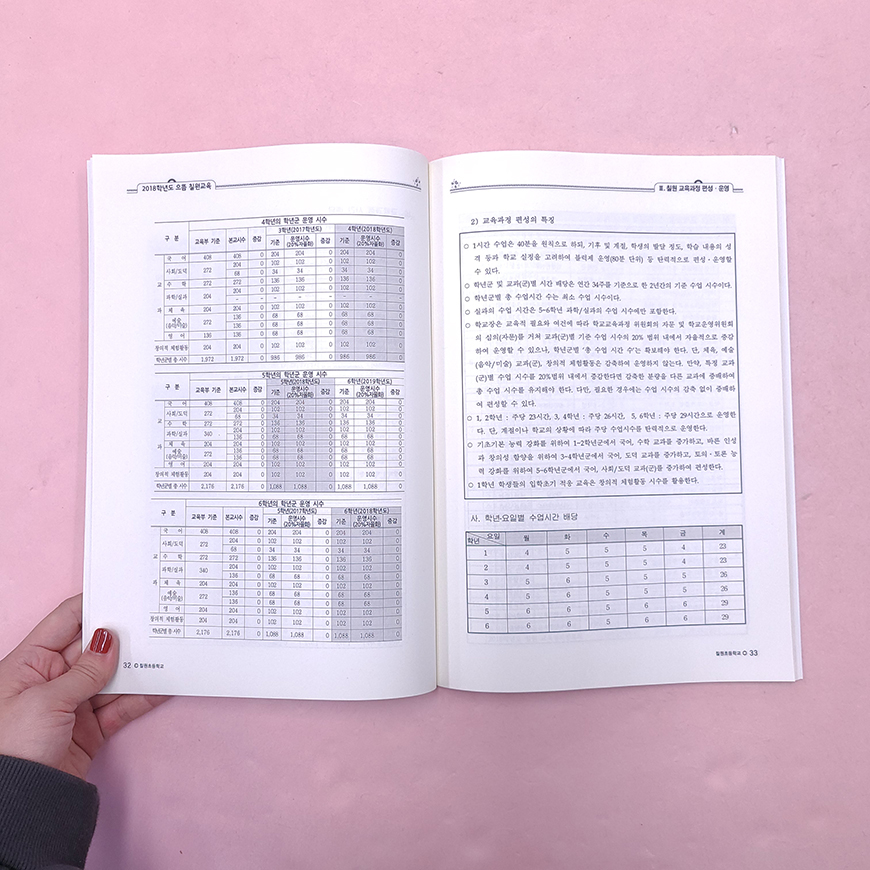 2018학년도 으뜸 칠원교육
4학년의 학년군 운영 시수
구 분 교육부 기준 본교시수 증감 3학년(2017학년도) 4학년(2018학년도)
기준 운영시수 (20%자율화) 증감 기준 운영시수 (20%자율화) 증감
국 어 408 408 0 204 204 0 204 204 0
사회/도덕 272 204 0 102 102 0 102 102 0
68 0 34 34 0 34 34 0
교 수 학 272 272 0 136 136 0 136 136 0
과학/실과 204 204 0 102 102 0 102 102 0
- - - - - - - -
과 체 육 204 204 0 102 102 0 102 102 0
예술 (음악/미술) 272 136 0 68 68 0 68 68 0
136 0 68 68 0 68 68 0
영 어 136 136 0 68 68 0 68 68 0
창의적 체험활동 204 204 0 102 102 0 102 102 0
학년군별 총 시수 1,972 1,972 0 986 986 0 986 986 0
5학년의 학년군 운영 시수
구 분 교육부 기준 본교시수 증감 5학년(2018학년도) 6학년(2019학년도)
기준 운영시수 (20%자율화) 증감 기준 운영시수 (20%자율화) 증감
국 어 408 408 0 204 204 0 204 204 0
사회/도덕 272 204 0 102 102 0 102 102 0
68 0 34 34 0 34 34 0
교 수 학 272 272 0 136 136 0 136 136 0
과학/실과 340 204 0 102 102 0 102 102 0
136 0 68 68 0 68 68 0
과 체 육 204 204 0 102 102 0 102 102 0
예술 (음악/미술) 272 136 0 68 68 0 68 68 0
136 0 68 68 0 68 68 0
영 어 204 204 0 102 102 0 102 102 0
창의적 체험활동 204 204 0 102 102 0 102 102 0
학년군별 총 시수 2,176 2,176 0 1,088 1,088 0 1,088 1,088 0
6학년의 학년군 운영 시수
구 분 교육부 기준 본교시수 증감 5학년(2017학년도) 6학년(2018학년도)
기준 운영시수 (20%자율화) 증감 기준 운영시수 (20%자율화) 증감
국 어 408 408 0 204 204 0 204 204 0
사회/도덕 272 204 0 102 102 0 102 102 0
68 0 34 34 0 34 34 0
교 수 학 272 272 0 136 136 0 136 136 0
과학/실과 340 204 0 102 102 0 102 102 0
136 0 68 68 0 68 68 0
과 체 육 204 204 0 102 102 0 102 102 0
예술 (음악/미술) 272 136 0 68 68 0 68 68 0
136 0 68 68 0 68 68 0
영 어 204 204 0 102 102 0 102 102 0
창의적 체험활동 204 204 0 102 102 0 102 102 0
학년별 총 시수 2,176 2,176 0 1,088 1,088 0 1,088 1,088 0
32 칠원초등학교
Ⅲ. 칠원 교육과정 편성·운영
2) 교육과정 편성의 특징
○ 1시간 수업은 40분을 원칙으로 하되, 기후 및 계절, 학생의 발달 정도, 학습 내용의 성
격 등과 학교 실정을 고려하여 블럭제 운영(80분 단위) 등 탄력적으로 편성·운영할
수 있다.
○ 학년군 및 교과(군)별 시간 배당은 연간 34주를 기준으로 한 2년간의 기준 수업 시수이다.
○ 학년군별 총 수업시간 수는 최소 수업 시수이다.
○ 실과의 수업 시간은 5-6학년 과학/실과의 수업 시수에만 포함한다.
○ 학교장은 교육적 필요와 여건에 따라 학교교육과정 위원회의 자문 및 학교운영위원회
의 심의(자문)를 거쳐 교과(군)별 기준 수업 시수의 20% 범위 내에서 자율적으로 증감
하여 운영할 수 있으나, 학년군별 '총 수업 시간 수'는 확보해야 한다. 단, 체육, 예술
(음악/미술) 교과(군), 창의적 체험활동은 감축하여 운영하지 않는다. 만약, 특정 교과
(군)별 수업 시수를 20%범위 내에서 증감한다면 감축한 분량을 다른 교과에 증배하여
총 수업 시수를 유지해야 한다. 다만, 필요한 경우에는 수업 시수의 감축 없이 증배하
여 편성할 수 있다.
○ 1, 2학년 : 주당 23시간, 3, 4학년 : 주당 26시간, 5, 6학년 : 주당 29시간으로 운영한
다. 단, 계절이나 학교의 상황에 따라 주당 수업시수를 탄력적으로 운영한다.
○ 기초기본 능력 강화를 위하여 1-2학년군에서 국어, 수학 교과를 증가하고, 바른 인성
과 창의성 함양을 위하여 3-4학년군에서 국어, 도덕 교과를 증가하고, 토의·토론 능
력 강화를 위하여 5-6학년군에서 국어, 사회/도덕 교과(군)를 증가하여 편성한다.
○ 1학년 학생들의 입학초기 적응 교육은 창의적 체험활동 시수를 활용한다.
사. 학년·요일별 수업시간 배당
학년 요일 월 화 수 목 금 계
1 4 5 5 5 4 23
2 4 5 5 5 4 23
3 5 6 5 5 5 26
4 5 6 5 5 5 26
5 6 6 5 6 6 29
6 6 6 5 6 6 29
칠원초등학교 33